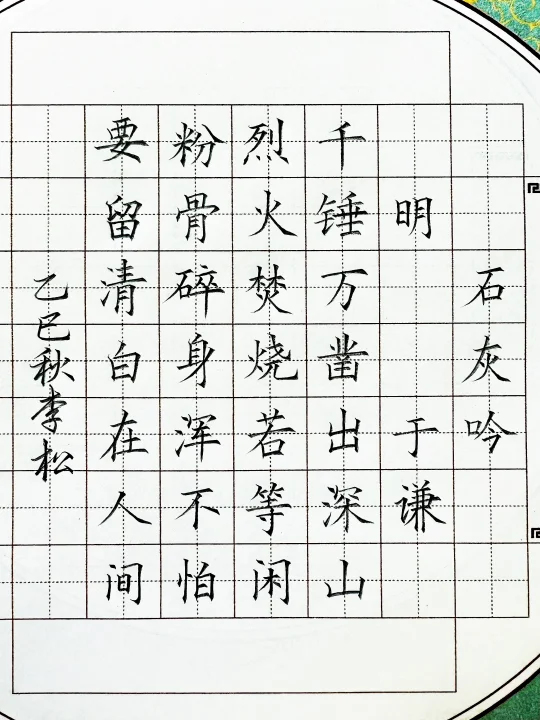 石灰吟
明 于谦
千锤万凿出深山
烈火焚烧若等闲
粉骨碎身浑不怕
要留清白在人间
乙巳秋李松